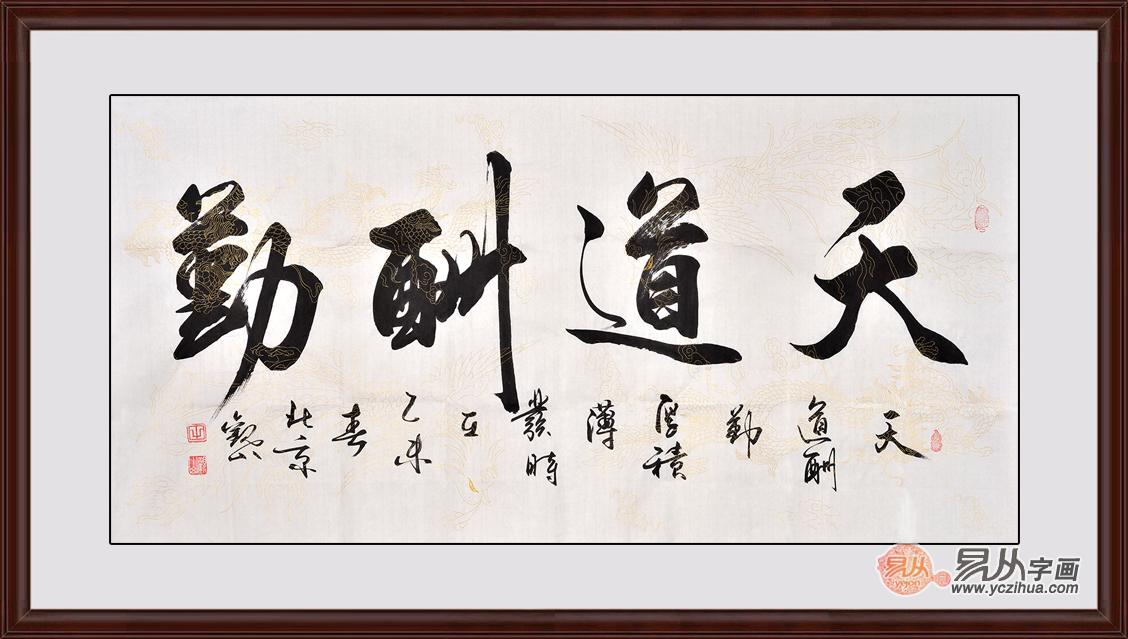 天道酬勤
天道酬勤厚積薄發時在乙未春北京觀山
易从
yejon
易从字画
www.yczihua.com